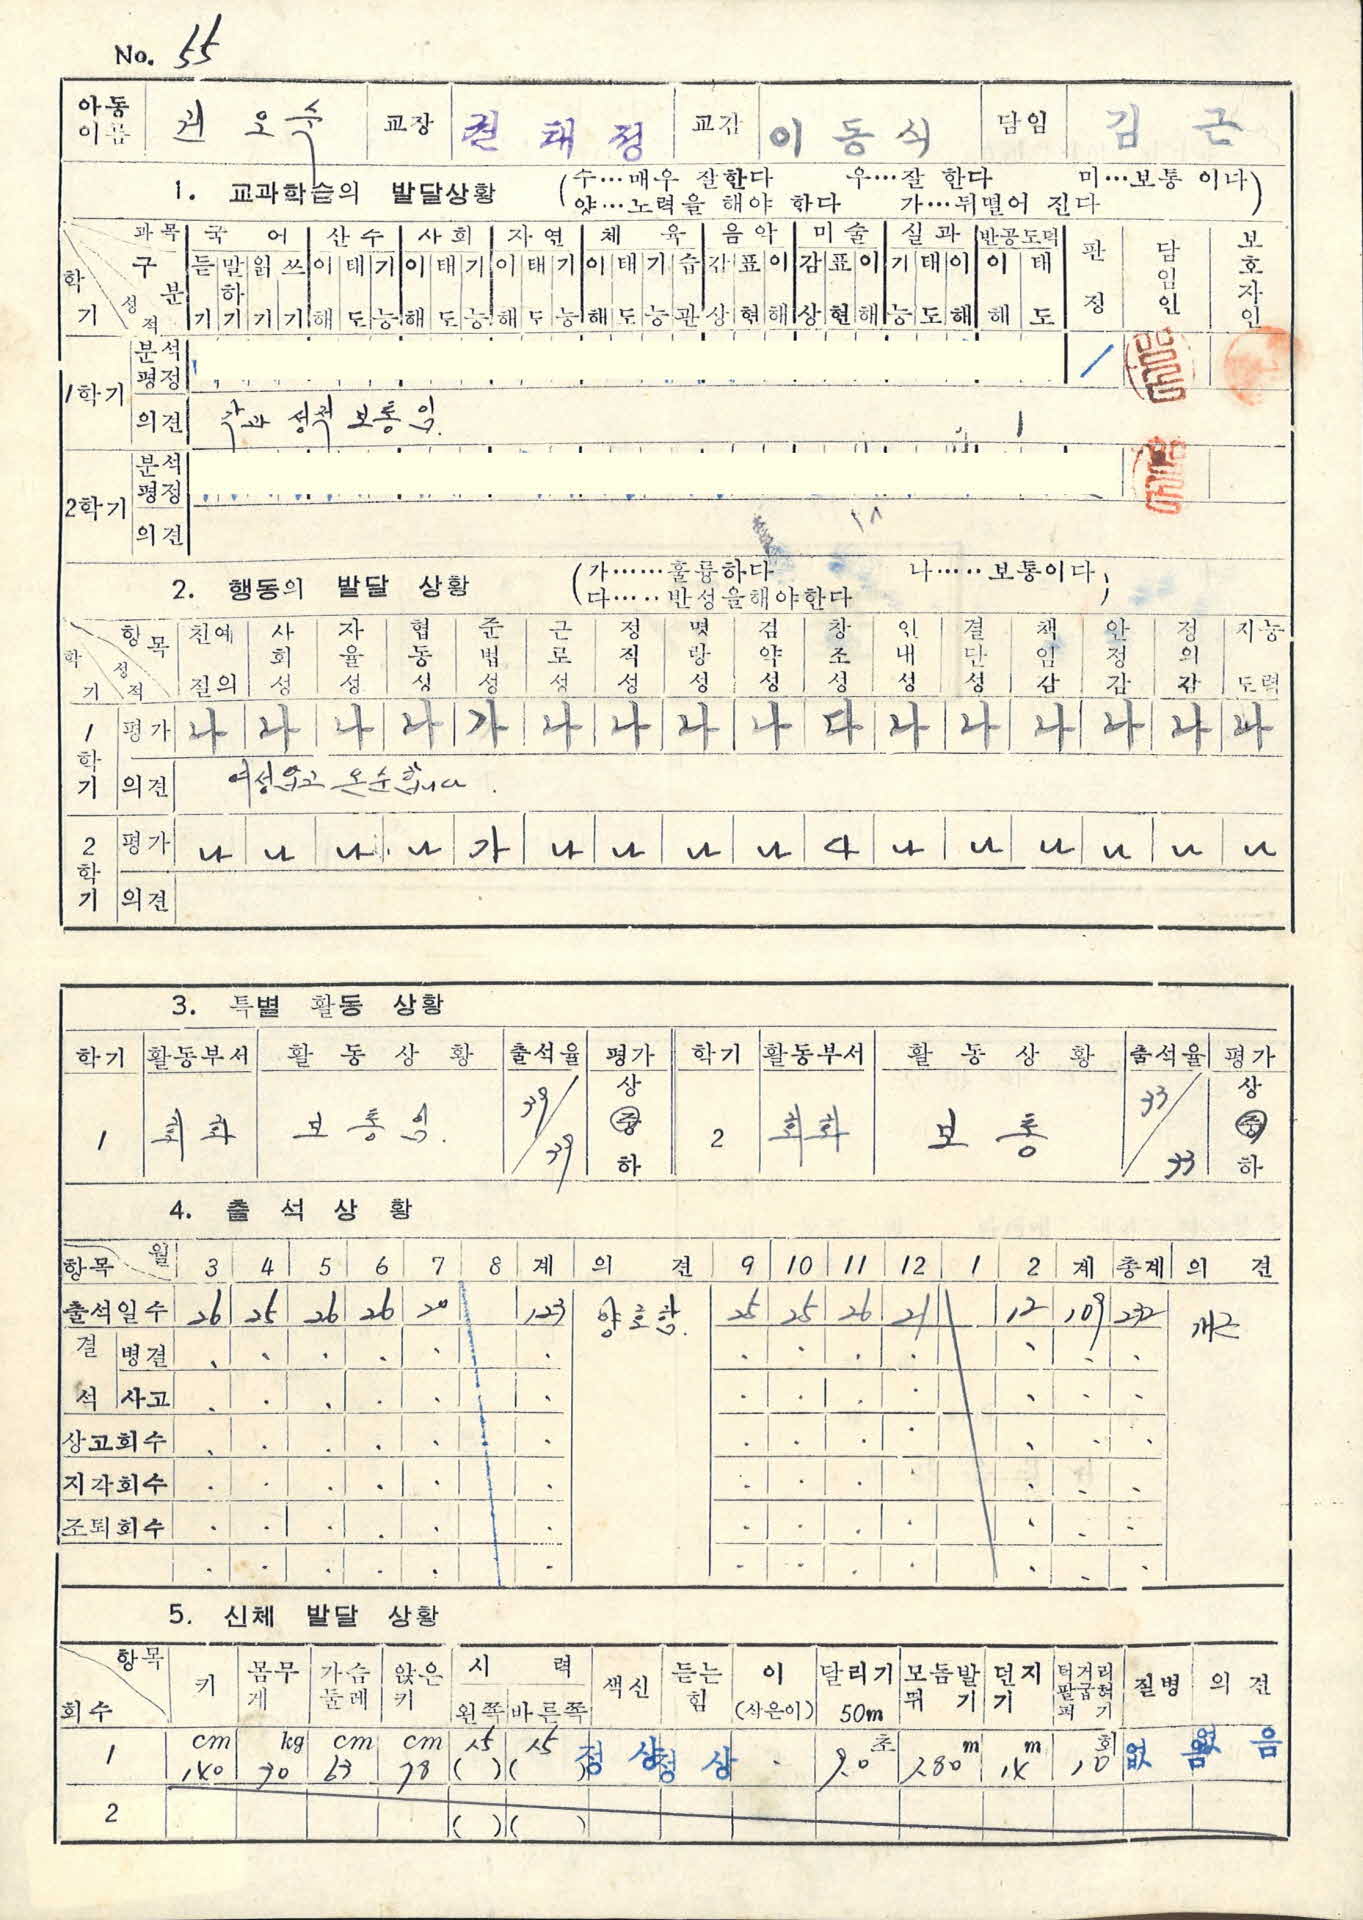 No. 55
아동이름 권오수 교장 권태정 교감 이동식 담임 김근
1. 교과학습의 발달상황 (수…매우 잘한다 우…잘 한다 미…보통 이다
양…노력을 해야 한다 가…뒤떨어 진다)
과목 국어 산수 사회 자연 체육 음악 미술 실과 반공도덕 판정 담임인 보호자인
학기 성적 구분 듣기 말하기 읽기 쓰기 이해 태도 기능 이해 태도 기능 이해 태도 기능 이해 태도 기능 습관 감상 표현 이해 감상 표현 이해 기능 태도 이해 이해 태도
1학기 분석평정
의견 각과 성적 보통임.
2학기 분석평정
의견
2. 행동의 발달 상황 (가……훌륭하다 나…‥보통이다,
다…‥반성을해야한다)
학기 성적 항목 친절 예의 사회성 자율성 협동성 준법성 근로성 정직성 명랑성 검약성 창조성 인내성 결단성 책임감 안정감 정의감 지도능력
1학기 평가 나 나 나 나 가 나 나 나 나 다 나 나 나 나 나 나
의견 여성습고 온순합니다.
2학기 평가 나 나 나 나 가 나 나 나 나 다 나 나 나 나 나 나
의견
3. 특별 활동 상황
학기 활동부서 활동상황 출석율 평가 학기 활동부서 활동상황 출석율 평가
1 회화 보통임. 39/39 상 중 하 2 회화 보통 33/33 상 중 하
4. 출석상황
항목 월 3 4 5 6 7 8 계 의견 9 10 11 12 1 2 계 총계 의견
출석일수 26 25 26 26 20 123 양호함. 25 25 26 21 12 109 232 개근
결석 병결
사고
상고회수
지각회수
조퇴회수
5. 신체 발달 상황
회수 항목 키 몸무게 가슴둘레 앉은키 시력 왼쪽 바른쪽 색신 듣는힘 이(삭은이) 달리기 50m 모둠발뛰기 던지기 턱걸이 팔굽혀펴기 질병 의견
1 cm 140 kg 30 cm 63 cm 78 1.5 ( ) 1.5 ( ) 정상 정상 9.0초 1.80m 14m 10회 없음 없음
2 ( ) ( )